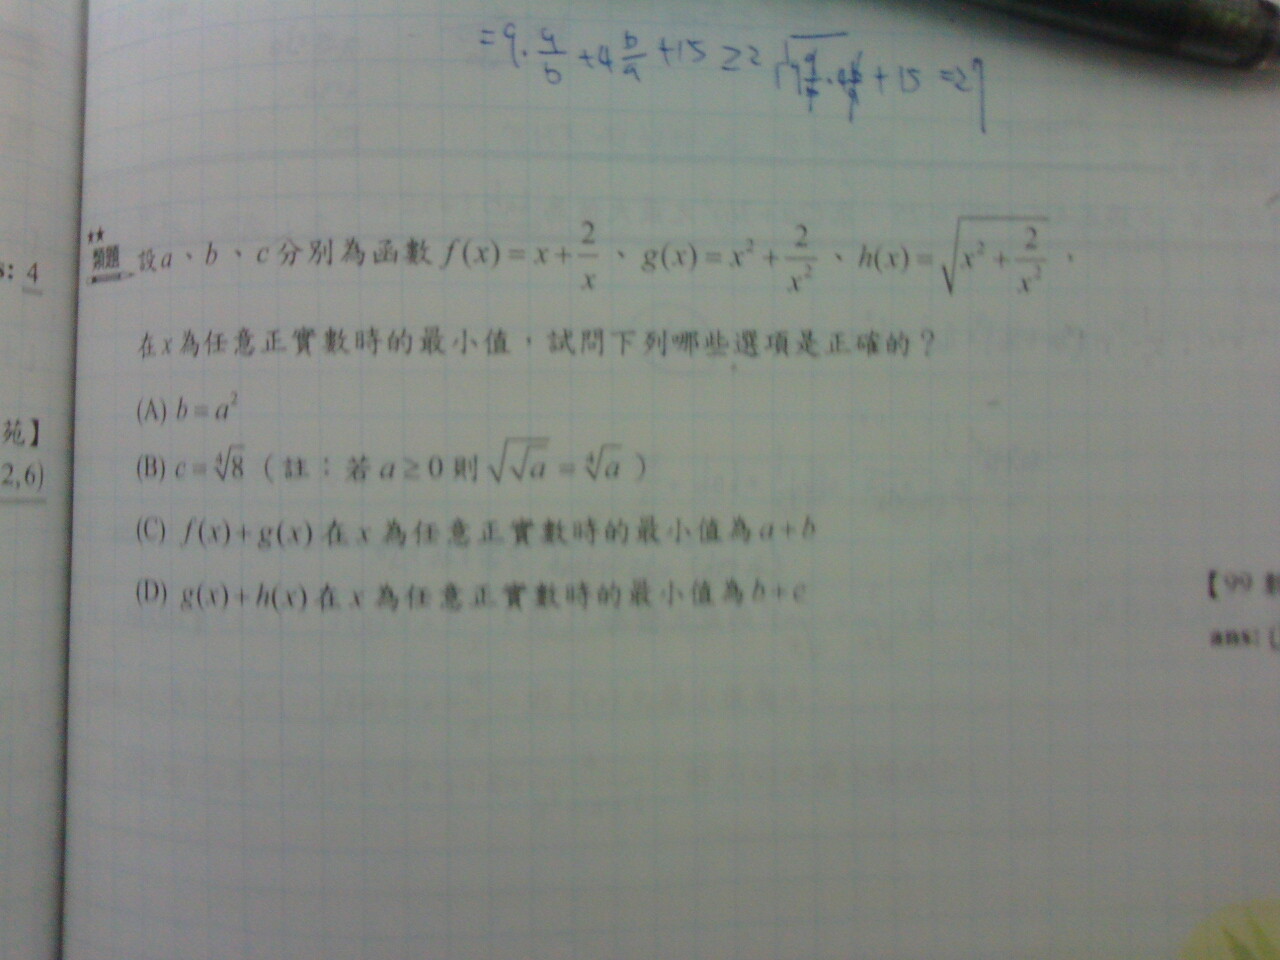 = 9 · a/b + 4 b/a + 15 ≥ 2 √(9 a/b · 4 b/a) + 15 = 27
★★
類題 設 a、b、c 分別為函數 f(x) = x + 2/x、g(x) = x² + 2/x²、h(x) = √(x² + 2/x²)，
s: 4
在 x 為任意正實數時的最小值，試問下列哪些選項是正確的？
(A) b = a²
苑】
(B) c = ⁴√8（註：若 a ≥ 0 則 √√a = ⁴√a）
2,6)
(C) f(x) + g(x) 在 x 為任意正實數時的最小值為 a + b
(D) g(x) + h(x) 在 x 為任意正實數時的最小值為 b + c
【99
ans: (